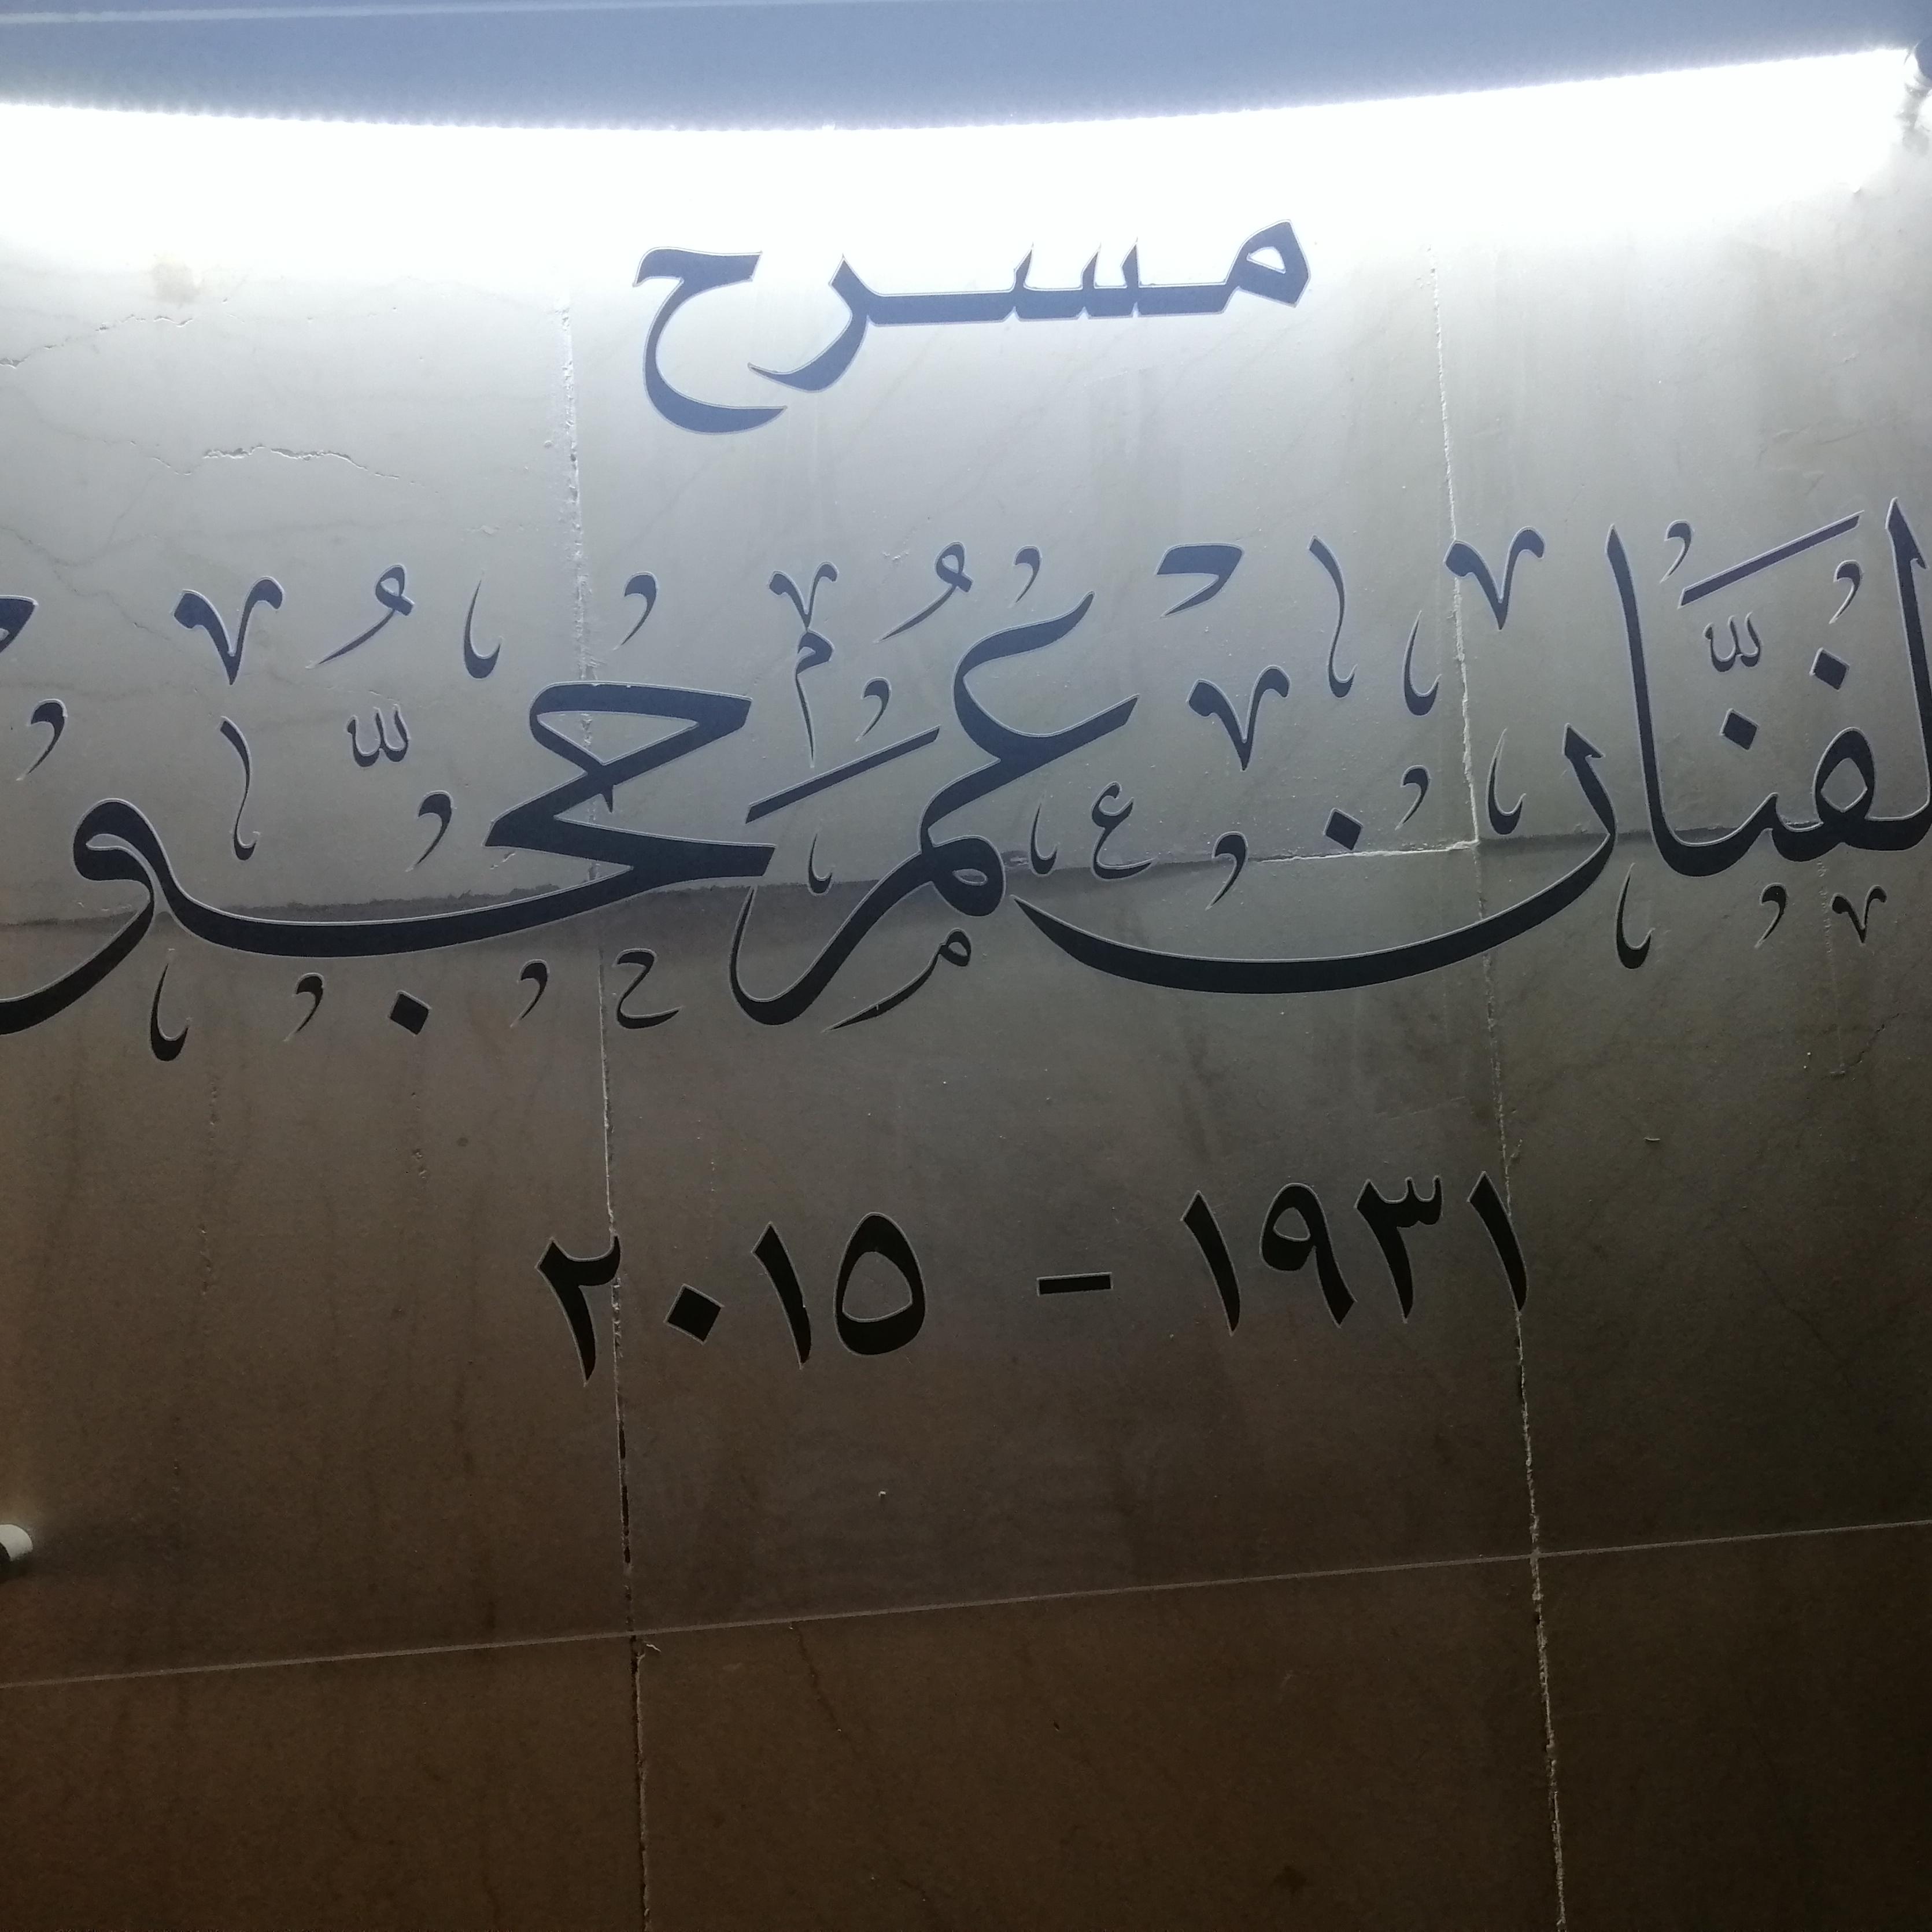 مسرح
الفنَّان عُمَر حجُّو
١٩٣١ - ٢٠١٥